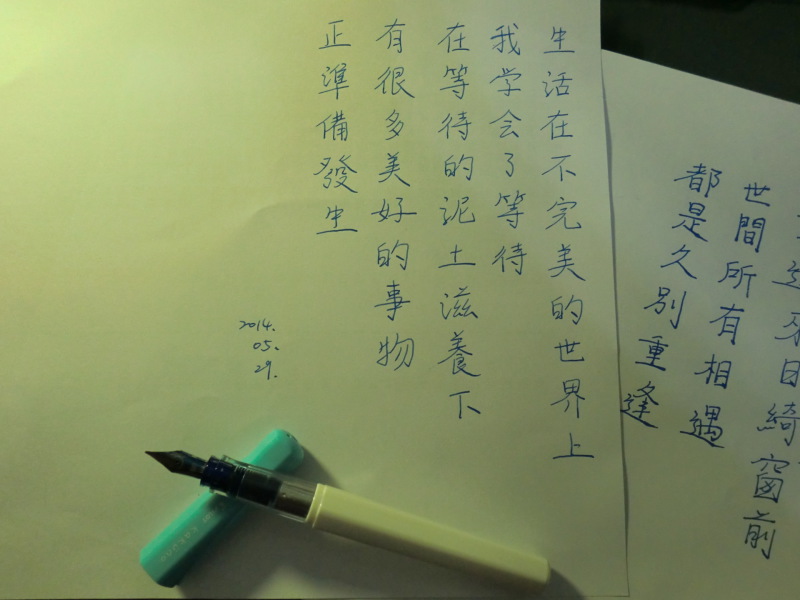 生活在不完美的世界上
我学会了等待
在等待的泥土滋養下
有很多美好的事物
正準備發生
2014.
05.
29.
日綺窗前
世間所有相遇
都是久別重逢